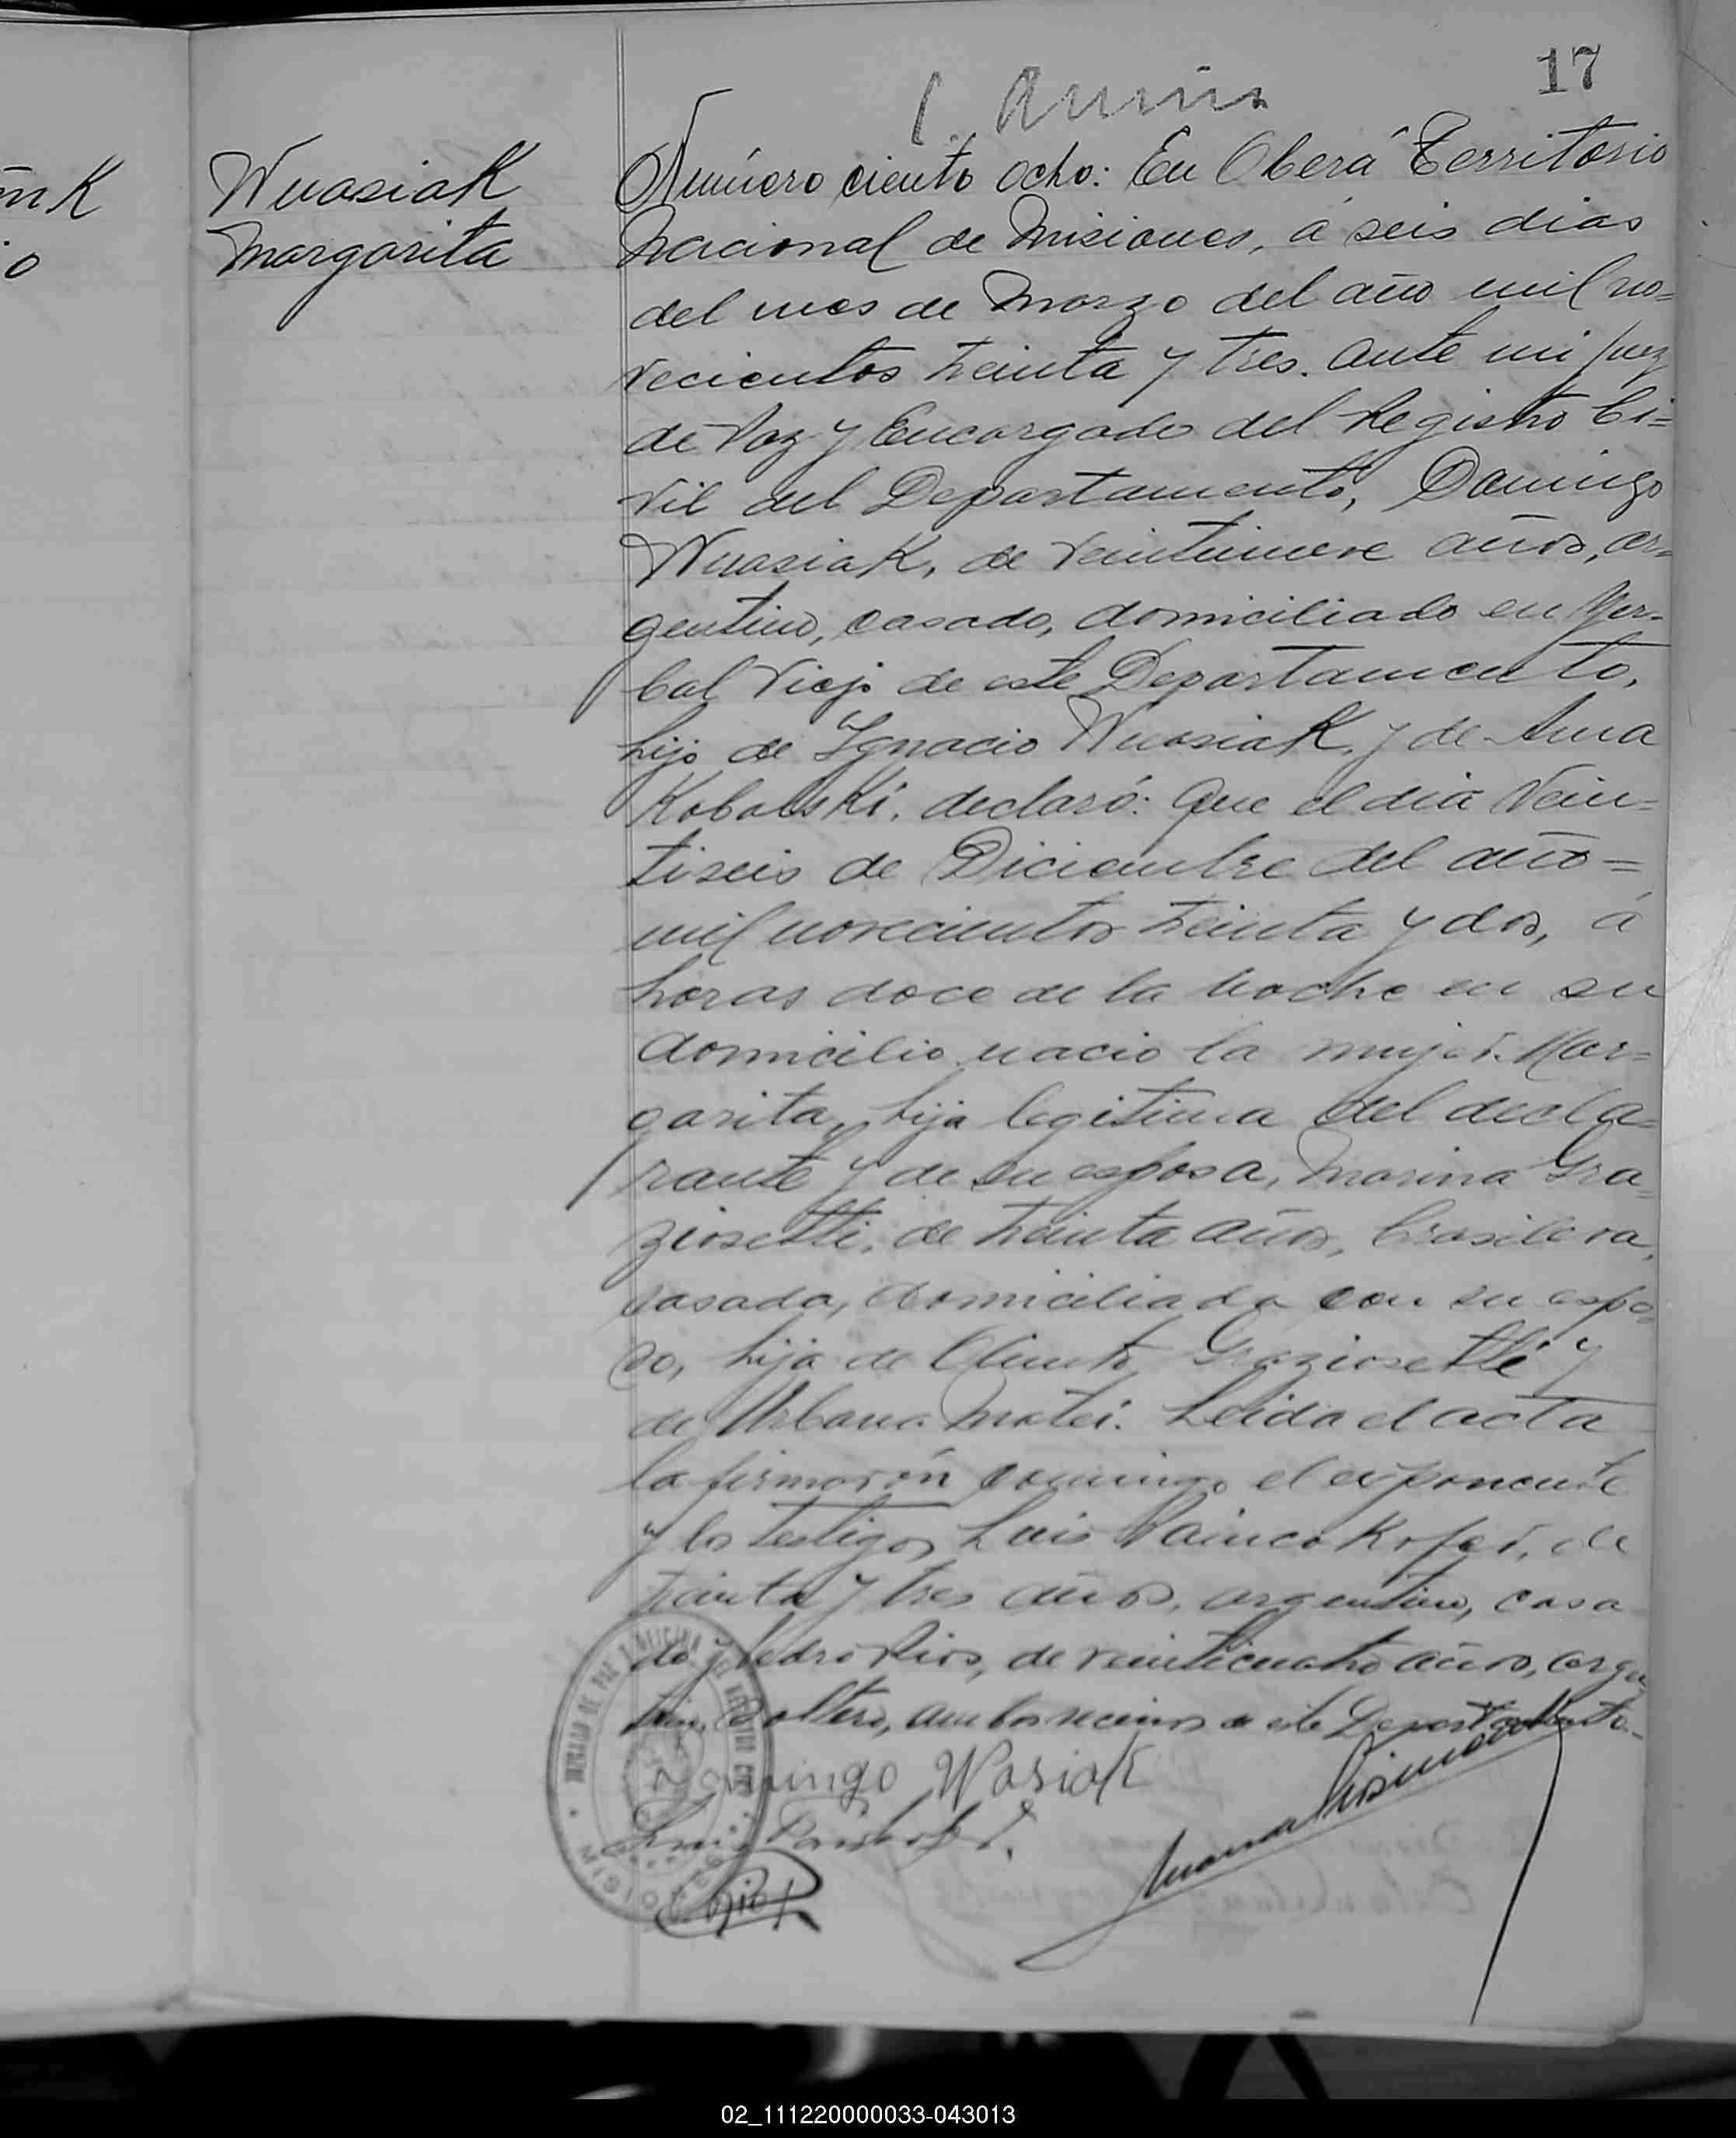 17
Wuasiak
Margarita
Número ciento ocho: En Oberá Territorio
Nacional de Misiones, á seis dias
del mes de Marzo del año mil no=
vecientos treinta y tres. ante mi Juez
de Paz y Encargado del Registro Ci=
vil del Departamento, Domingo
Wuasiak, de veintinueve años, ar=
gentino, casado, domiciliado en Yer-
bal Viejo de este Departamento,
hijo de Ygnacio Wuasiak, y de Ana
Kobalski, declaró: Que el dia Vein=
tiseis de Diciembre del año=
mil novecientos treinta y dos, á
horas doce de la noche en su
domicilio nacio la mujer Mar=
garita, hija legitima del decla=
rante y de su esposa, Marina Gra=
ziosetti, de treinta años, brasilera,
casada, domiciliada con su espo=
so, hija de Olinto Graziosetti y
de Urbana Matei. Leida el acta
la firmarón conmigo el exponente
y los testigos Luis de
treinta y tres años, argentino, casa
do y Pedro Rios, de veinticuatro años, argen
tino, soltero, ambos vecinos de este Departamento.
Domingo Wasiak
Luis
P. Rios
JUZGADO DE PAZ Y OFICINA DE REGISTRO CIVIL
MISIONES
nk
io
02_111220000033-043013